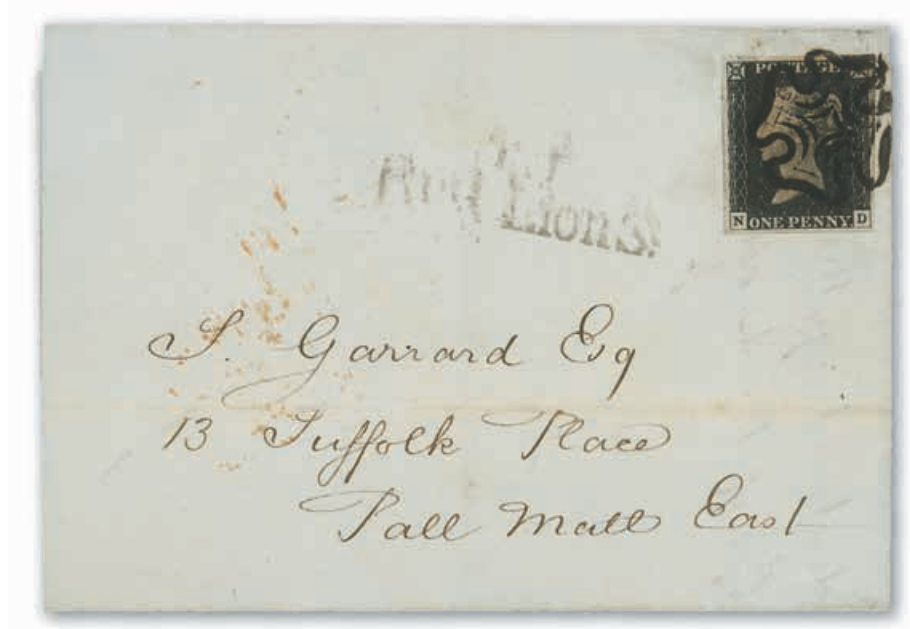 POSTAGE
N ONE PENNY D
Lion S!
S. Garrard Esq
13 Suffolk Place
Pall Mall East